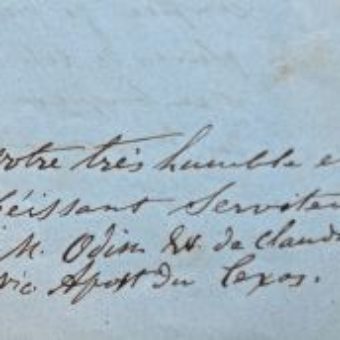 votre très humble e
béissant Serviteu
M. Odin Ev. de Claudi
vic. Apost du Texas.